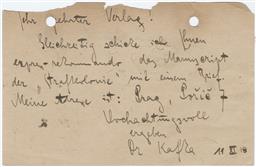 Sehr geehrter Verlag!
Gleichzeitig schicke ich Ihnen
express-rekommando das Manuscript
der „Strafkolonie“ mit einem Brief.
Meine Adresse ist: Prag, Pořič 7
Hochachtungsvoll
ergeben
Dr Kafka
11 XI 18